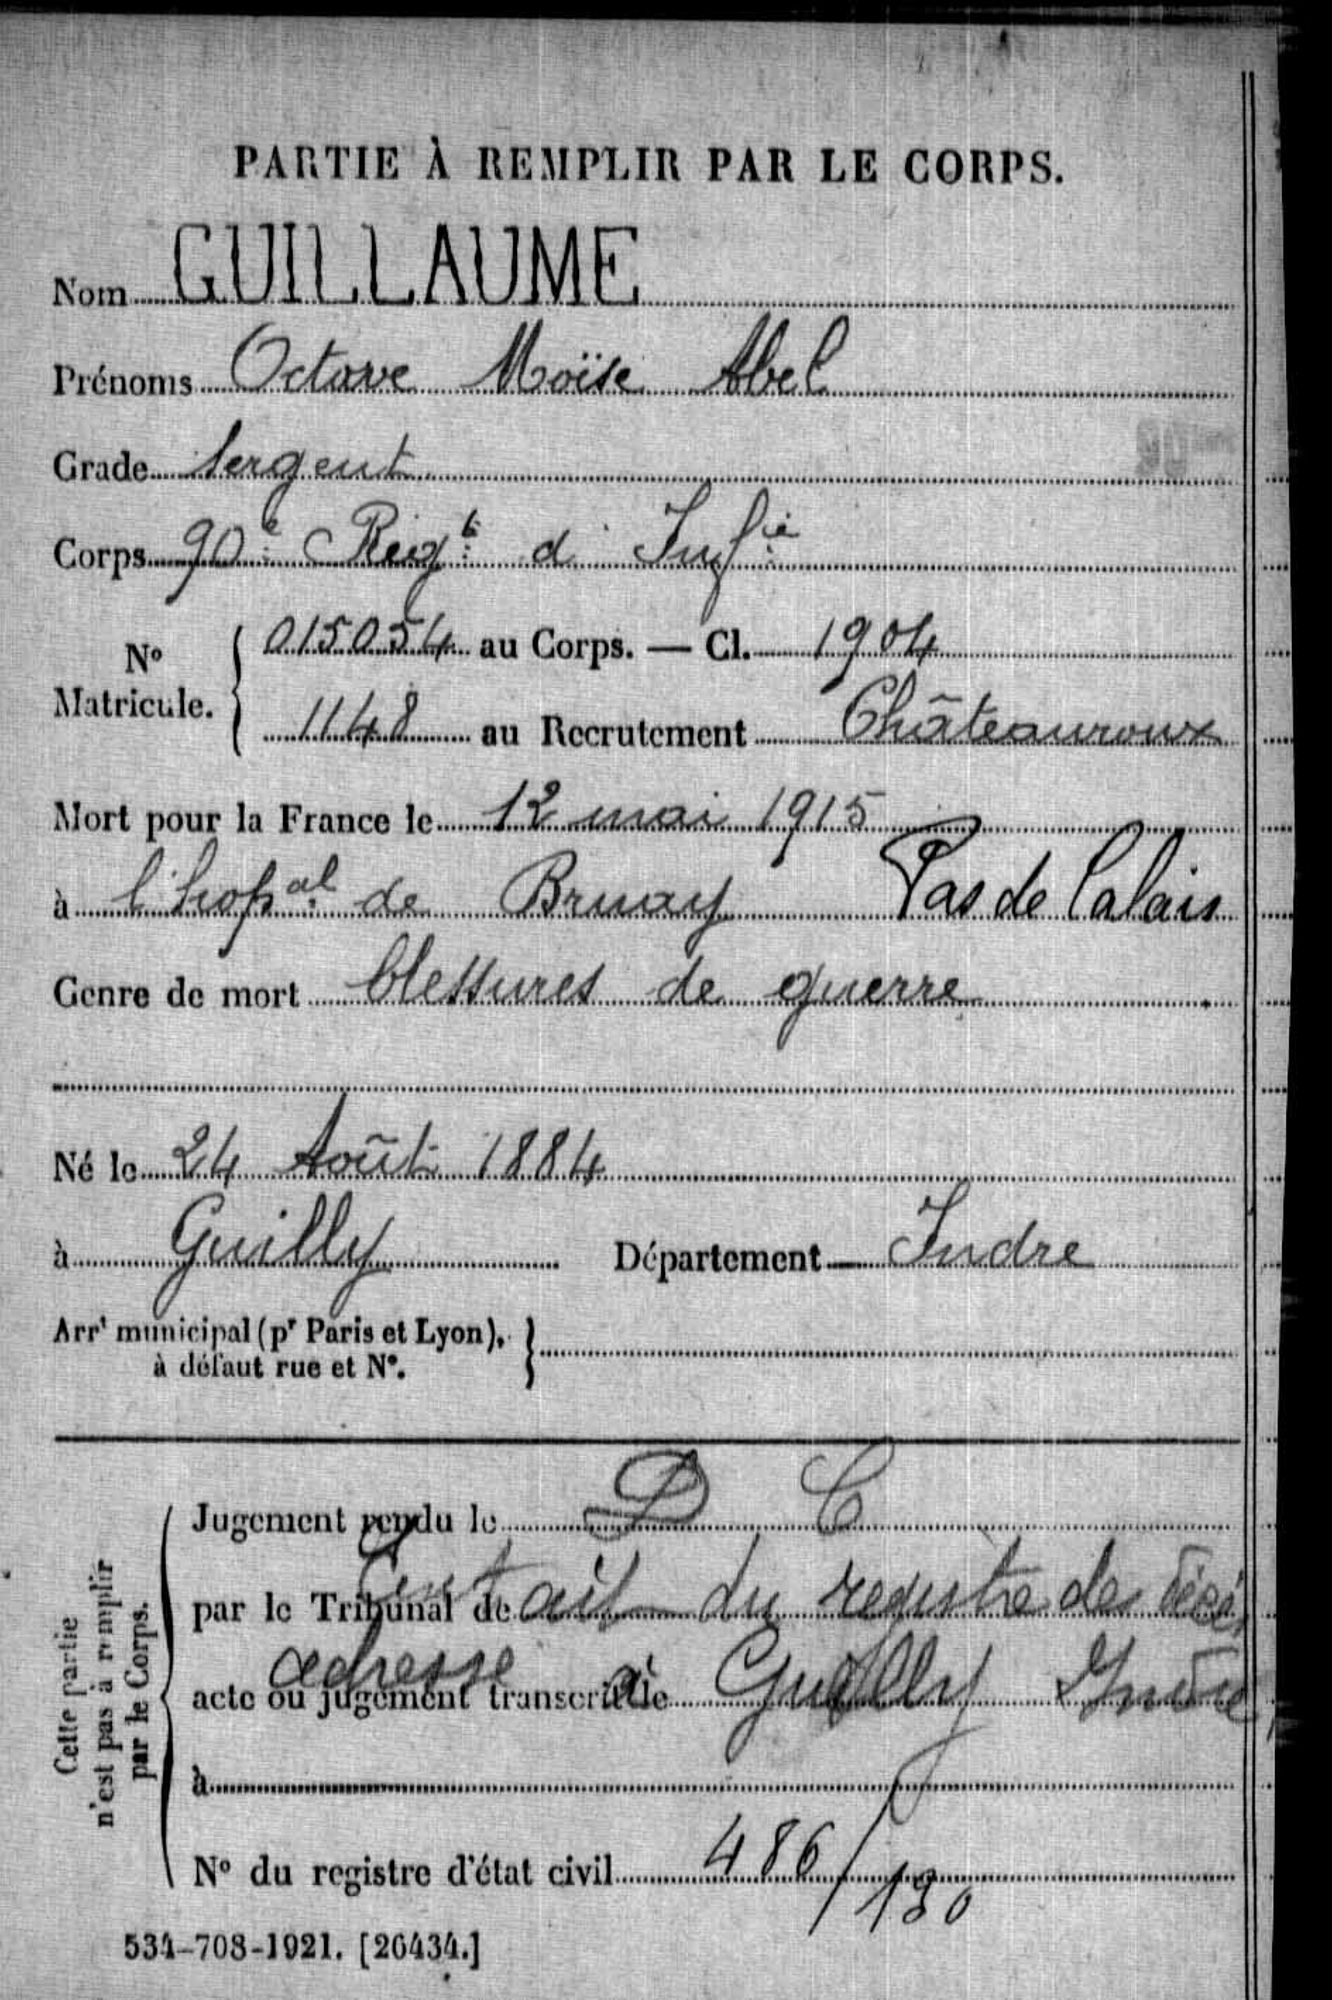 PARTIE À REMPLIR PAR LE CORPS.
Nom GUILLAUME
Prénoms Octave Moïse Abel
Grade Sergent
Corps 90e Regt d Infie
No Matricule. { 015054 au Corps. — Cl. 1904
1148 au Recrutement Châteauroux
Mort pour la France le 12 mai 1915
à l'hopal de Bruay Pas de Calais
Genre de mort blessures de guerre
Né le 24 Août 1884
à Guilly Département Indre
Arrt municipal (pr Paris et Lyon), à défaut rue et No. }
Cette partie n'est pas à remplir par le Corps.
D C
Jugement rendu le
par le Tribunal de
Extrait du registre des décès
adresse à Guilly Indre
acte ou jugement transcrit le
à
No du registre d'état civil 486/130
534-708-1921. [26434.]